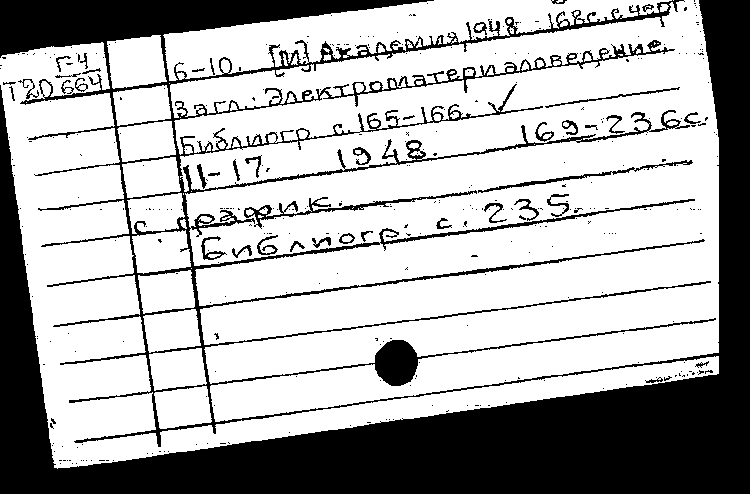 Г-4
Т20 664
6-10. [М], Академия, 1948 - 168с. с черт.
Загл.: Электроматериаловедение.
Библиогр. с. 165-166. ✓
11-17. 1948. 169-236с.
с график.
- Библиогр: с. 235.